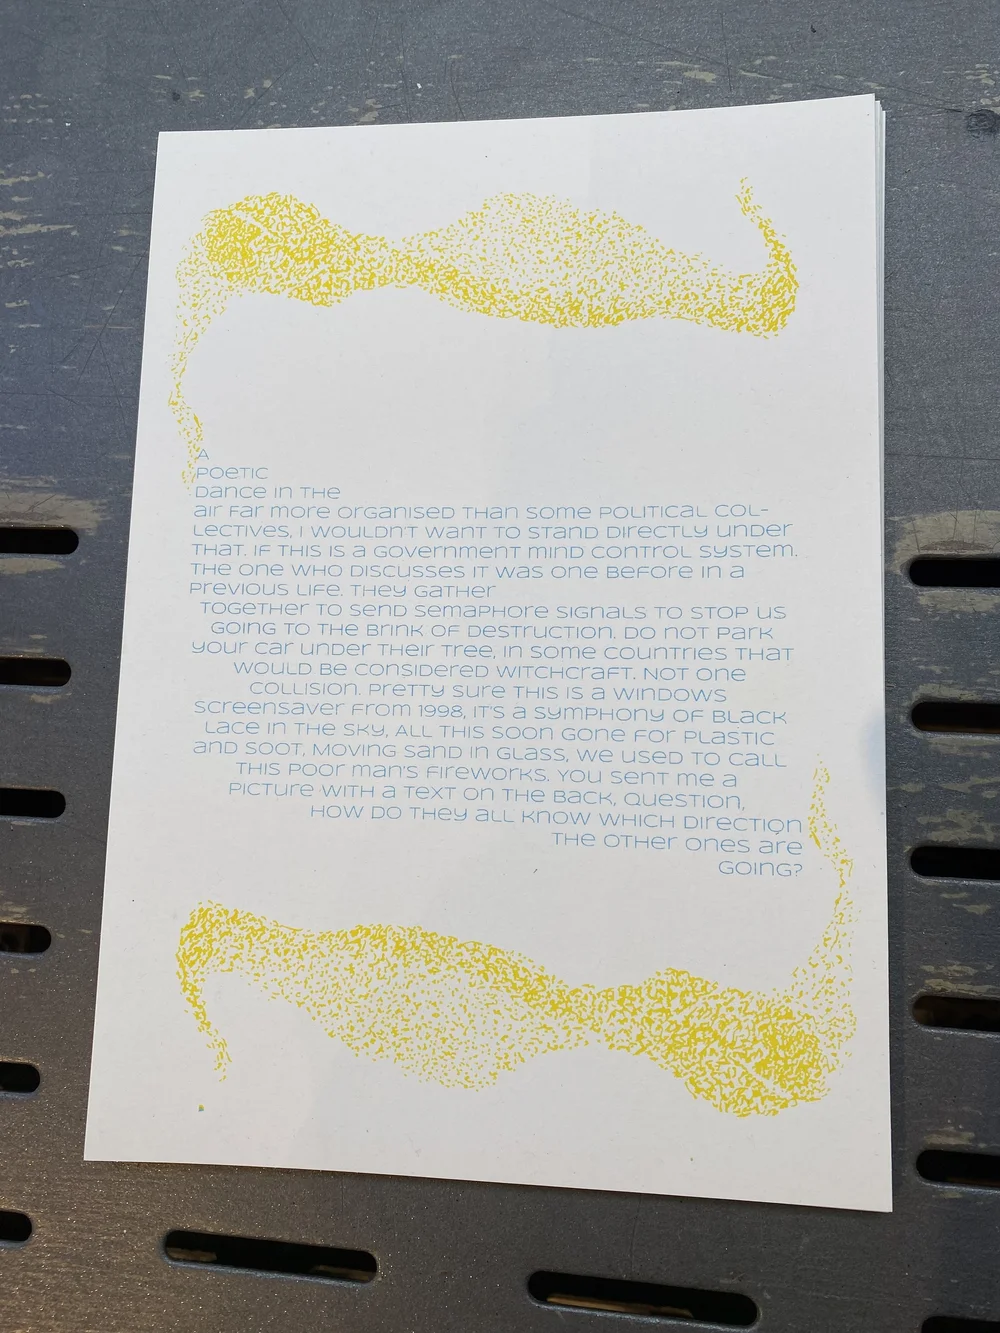 A
POETIC
DANCE IN THE
AIR FAR MORE ORGANISED THAN SOME POLITICAL COL-
LECTIVES, I WOULDN'T WANT TO STAND DIRECTLY UNDER
THAT. IF THIS IS A GOVERNMENT MIND CONTROL SYSTEM.
THE ONE WHO DISCUSSES IT WAS ONE BEFORE IN A
PREVIOUS LIFE. THEY GATHER
TOGETHER TO SEND SEMAPHORE SIGNALS TO STOP US
GOING TO THE BRINK OF DESTRUCTION. DO NOT PARK
YOUR CAR UNDER THEIR TREE, IN SOME COUNTRIES THAT
WOULD BE CONSIDERED WITCHCRAFT. NOT ONE
COLLISION. PRETTY SURE THIS IS A WINDOWS
SCREENSAVER FROM 1998, IT'S A SYMPHONY OF BLACK
LACE IN THE SKY, ALL THIS SOON GONE FOR PLASTIC
AND SOOT, MOVING SAND IN GLASS, WE USED TO CALL
THIS POOR MAN'S FIREWORKS. YOU SENT ME A
PICTURE WITH A TEXT ON THE BACK, QUESTION,
HOW DO THEY ALL KNOW WHICH DIRECTION
THE OTHER ONES ARE
GOING?